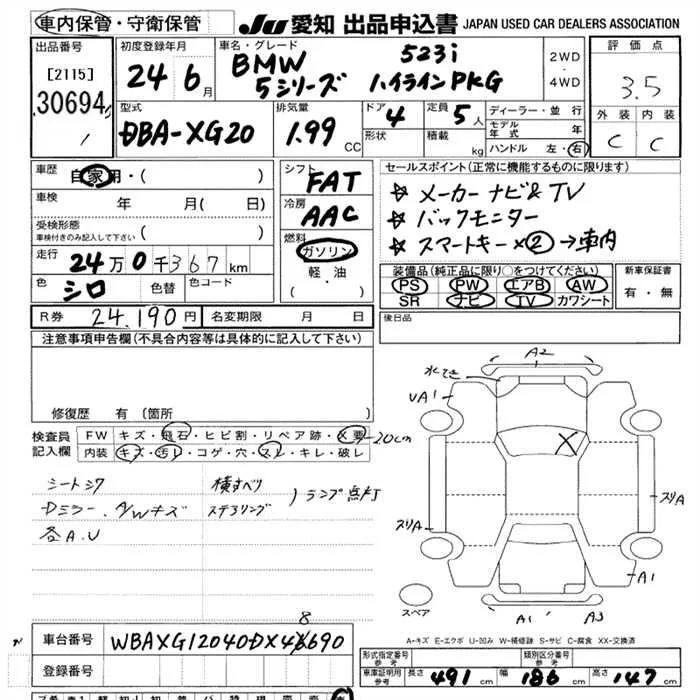 車内保管・守衛保管
JU 愛知 出品申込書 JAPAN USED CAR DEALERS ASSOCIATION
出品番号
[2115]
30694
初度登録年月
24年6月
車名・グレード
BMW 523i
5シリーズ ハイラインPKG
2WD
4WD
評価点
3.5
外装 内装
C C
型式
DBA-XG20
排気量
1.99 CC
ドア 4
形状
定員 5人
積載 kg
ディーラー・並行
モデル年式 年
ハンドル 左・右
車歴 自家用・( )
車検 年 月( 日)
受検形態
車検付きのみ記入して下さい ( )
走行 24万0千367km
色 シロ 色替 色コード
R券 24,190円 名変期限 月 日
シフト
FAT
冷房
AAC
燃料
ガソリン
軽・油
( ・ )
セールスポイント(正常に機能するものに限ります)
☆ メーカーナビ& TV
☆ バックモニター
☆ スマートキー×② → 車内
装備品(純正品に限り○をつけてください)
PS PW エアB AW
SR ナビ TV カワシート
新車保証書
有・無
後日品
注意事項申告欄(不具合内容等は具体的に記入して下さい)
修復歴 有(箇所
検査員記入欄
FW キズ・飛石・ヒビ割・リペア跡・X要 20cm
内装 キズ・汚レ・コゲ・穴・スレ・キレ・破レ
シートシワ 横すべり
Dミラー、A/Wキズ ステアリング )ランプ点灯
各A.U
A2
UA1
X
スリA
スリA
A1
スペア
A1 A3
A-キズ E-エクボ U-凹み W-補修跡 S-サビ C-腐食 XX-交換済
車台番号 WBAXG12040DX48690
登録番号
形式指定番号
参考
類別区分番号
参考
車庫証明用
参考
長さ 491cm 幅 186cm 高さ 147cm